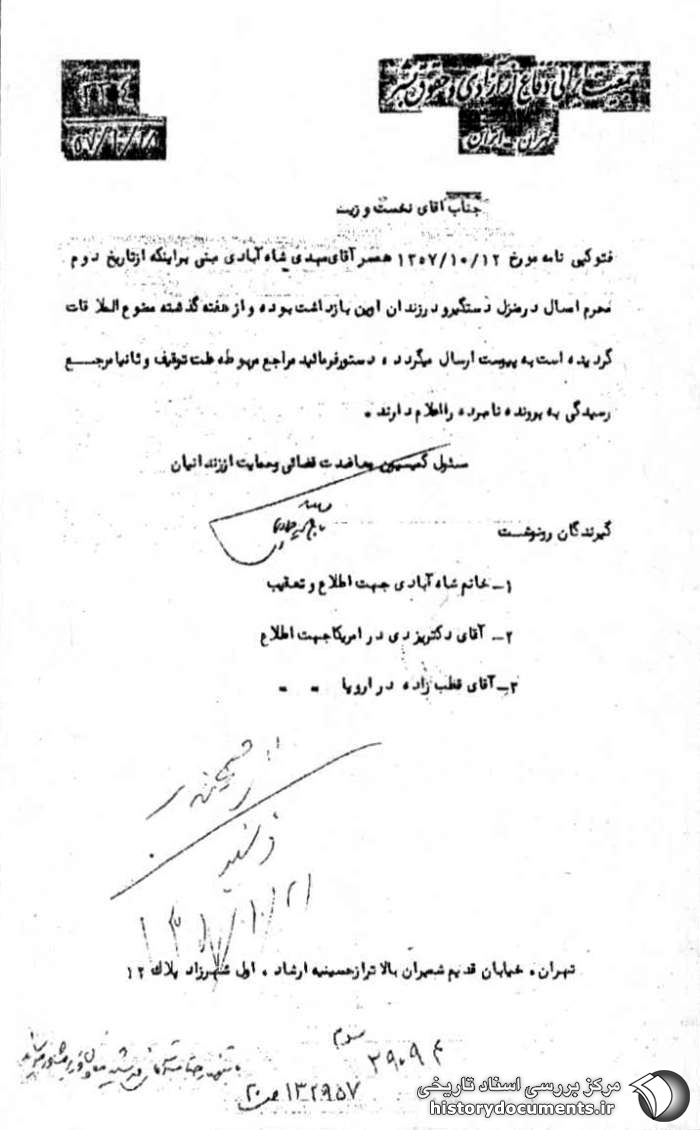 جمعیت ایرانی دفاع از آزادی و حقوق بشر
تهران - ایران
۲۲۴
۵۷/۱۰/۱۸
جناب آقای نخست وزیر
فتوکپی نامه مورخ ۱۳۵۷/۱۰/۱۲ همسر آقای مهدی شاه آبادی مبنی براینکه ازتاریخ دوم
محرم امسال درمنزل دستگیرو درزندان اوین بازداشت بوده و از هفته گذشته ممنوع الملاقات
گردیده است به پیوست ارسال میگردد ، دستورفرمائید مراجع مربوطه علت توقیف و ثانیا مرجع
رسیدگی به پرونده نامبرده را اعلام دارند .
مسئول کمیسیون معاضدت قضائی و حمایت اززندانیان
گیرندگان رونوشت
۱- خانم شاه آبادی جهت اطلاع و تعقیب
۲- آقای دکتریزدی در امریکاجهت اطلاع
۳- آقای قطب زاده در اروپا " "
تهران، خیابان قدیم شمیران بالا ترازحسینیه ارشاد ، اول شهرزاد پلاک ۱۲
سوم
۳۹۰۹۴
۱۳۲۹۵۷
مرکز بررسی اسناد تاریخی
historydocuments.ir